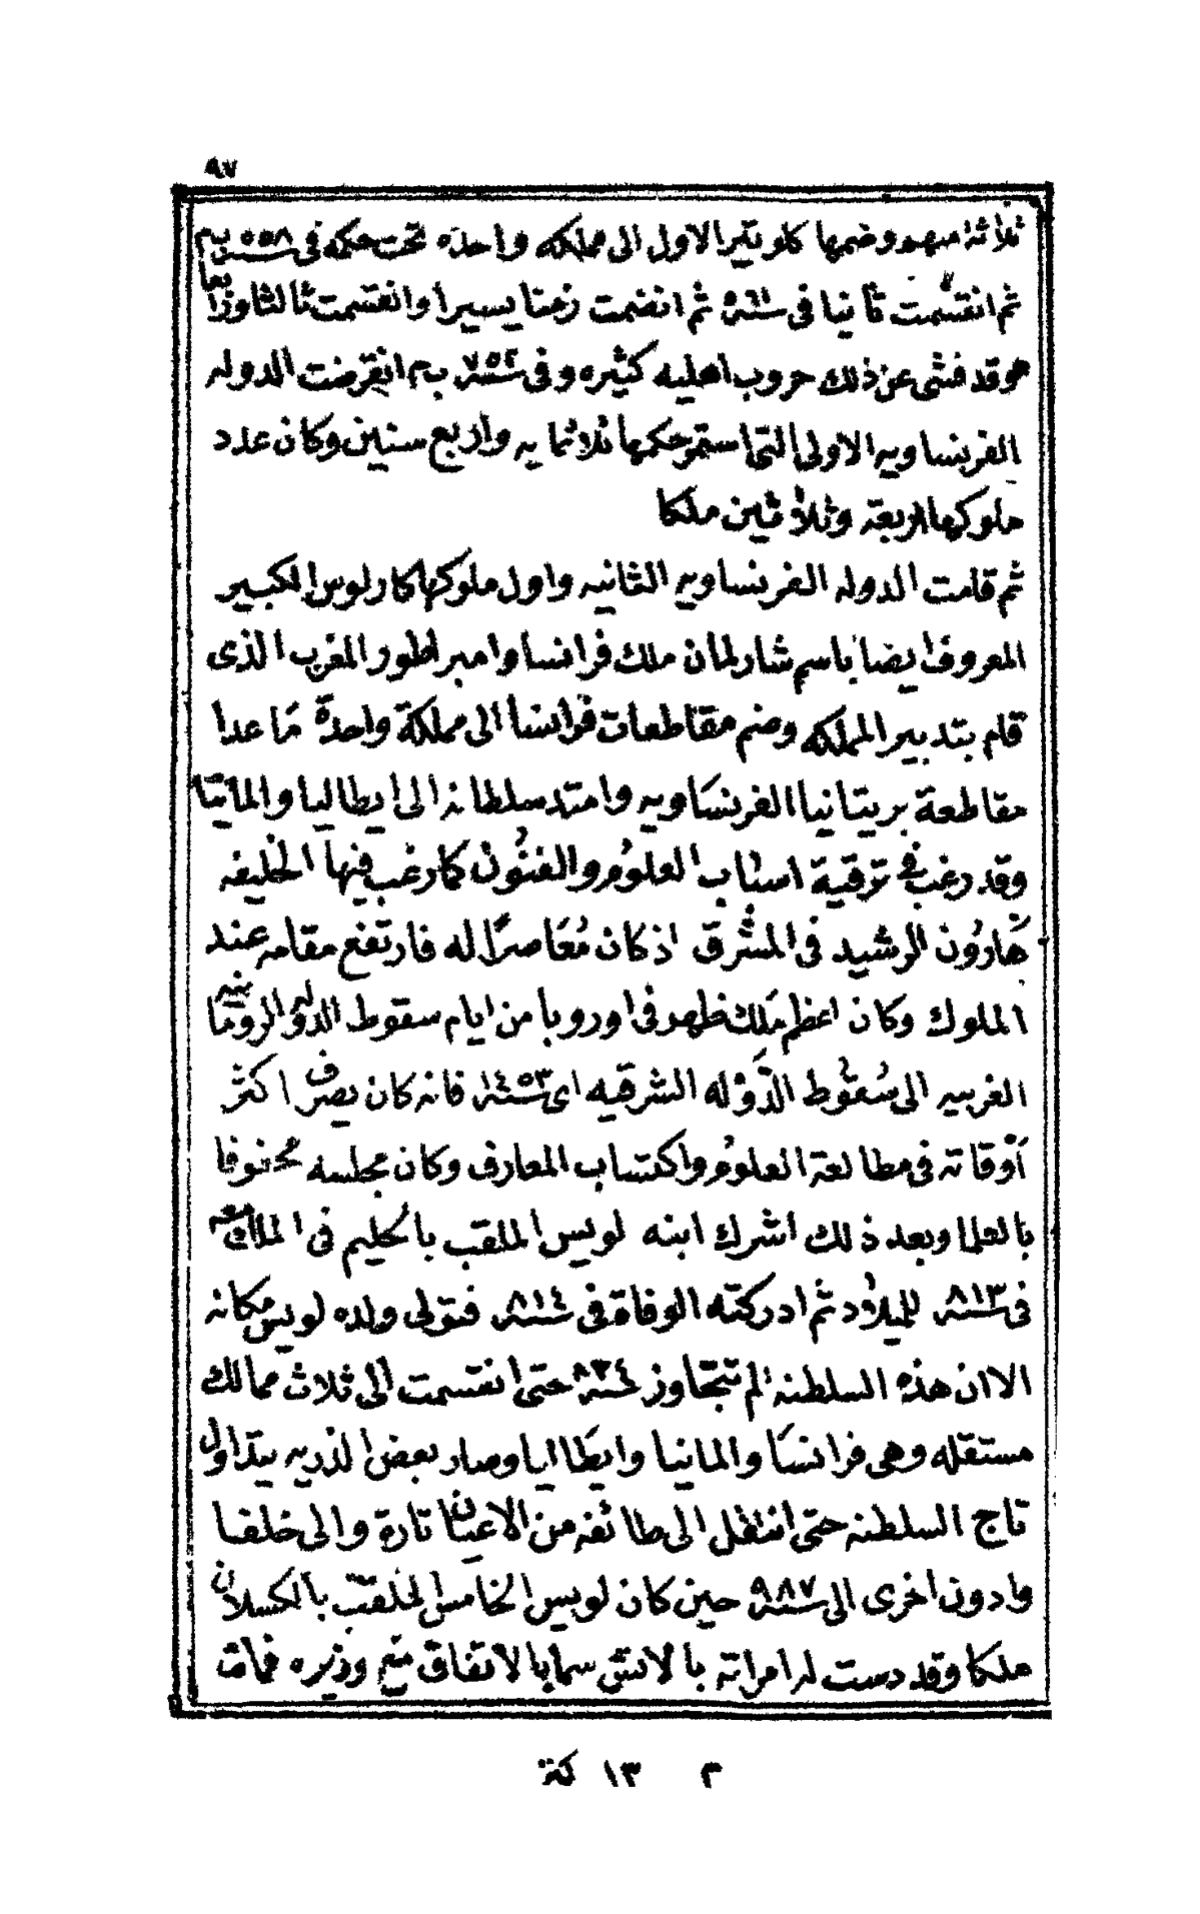 ٩٧
ثلاثة منهم وضمها كلوتيرا الاول الى مملكه واحده تحت حكمه فى سنة ٥٥٨ ب م
ثم انقسمت ثانيا فى سنة ٥٦١ ثم انضمت زمنا يسيرا وانقسمت ثالثا ورابعا
هو قد فشى عن ذلك حروب اهليه كثيره وفى سنة ٧٥٢ ب م انقرضت الدوله
الفرنساويه الاولى التى استمر حكمها ثلاثمايه واربع سنين وكان عدد
ملوكها اربعة وثلاثين ملكا
ثم قامت الدوله الفرنساويه الثانيه واول ملوكها كارلوس الكبير
المعروف ايضا باسم شارلمان ملك فرانسا وامبراطور المغرب الذى
قام بتدبير المملكه وضم مقاطعات فرانسا الى مملكة واحدة مَا عدا
مقاطعة بريتانيا الفرنسَاويه وامتد سلطانه الى ايطاليا والمانيا
وقد رغب فى ترقية اسباب العلوُم والفنُون كما رغب فيها الخليفه
هَارُون الرشيد فى المشُرق اذ كان مُعَاصرًا له فارتفع مقامه عند
الملوك وكان اعظم مَلك ظهر فى اوروبا من ايام سقوط الدوله الرومَانيه
الغربيه الى سُقوُط الدَّوْله الشرقيه اى سنة ١٤٥٣ فانه كان يصرف اكثر
اَوْقاته فى مطالعة العلوُم واكتساب المعارف وكان مجلسه محفوفا
بالعلما وبعد ذلك اشرك ابنه لويس الملقب بالحليم فى الملك معه
فى سنة ٨١٣ للميلاد ثم ادركته الوفاة فى سنة ٨١٤ فتولى ولده لويس مكانه
الا ان هذه السلطنه لم تتجاوز سنة ٨٣٤ حتى انقسمت الى ثلاث ممالك
مستقله وهى فرانسَا والمانيا وايطَاليا وصار بعض الذريه يتداول
تاج السلطنه حتى انتقل الى طائفه من الاعيان تارة والى خلفا
وادون اخرى الى سنة ٩٨٧ حين كان لويس الخامس الملقب بالكسلان
ملكا وقد دست له امراته بالاتش سما بالاتفاق مَع وزيره فمات
م ١٣ كنز